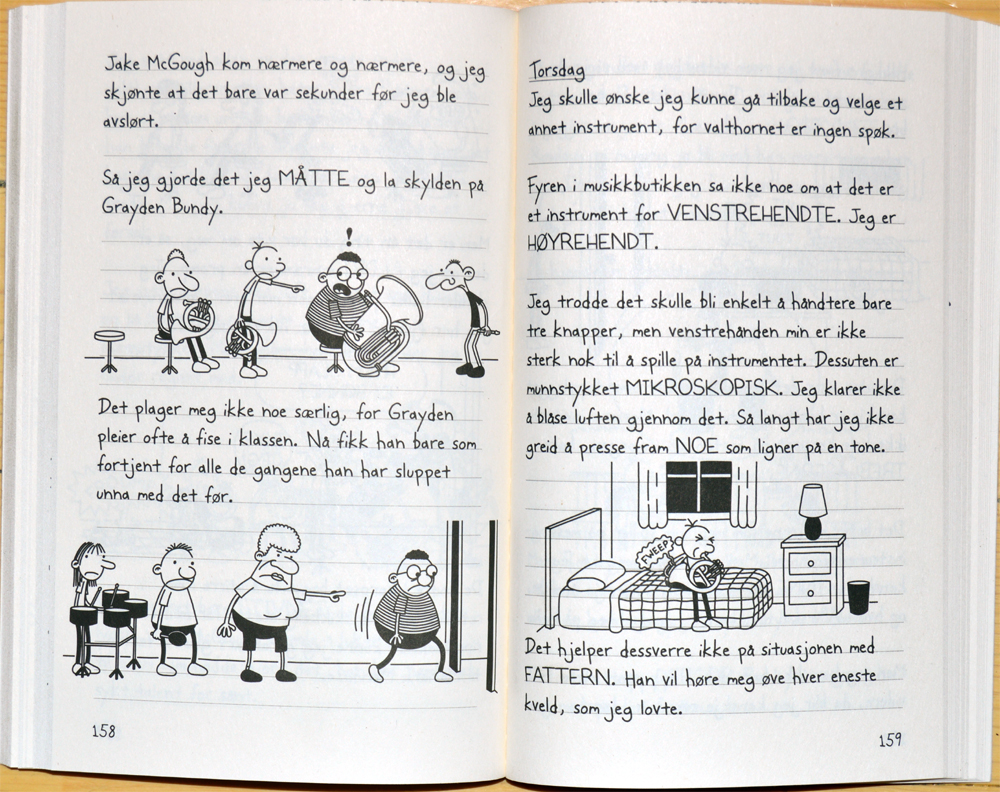 Jake McGough kom nærmere og nærmere, og jeg
skjønte at det bare var sekunder før jeg ble
avslørt.
Så jeg gjorde det jeg MÅTTE og la skylden på
Grayden Bundy.
!
Det plager meg ikke noe særlig, for Grayden
pleier ofte å fise i klassen. Nå fikk han bare som
fortjent for alle de gangene han har sluppet
unna med det før.
158
Torsdag
Jeg skulle ønske jeg kunne gå tilbake og velge et
annet instrument, for valthornet er ingen spøk.
Fyren i musikkbutikken sa ikke noe om at det er
et instrument for VENSTREHENDTE. Jeg er
HØYREHENDT.
Jeg trodde det skulle bli enkelt å håndtere bare
tre knapper, men venstrehånden min er ikke
sterk nok til å spille på instrumentet. Dessuten er
munnstykket MIKROSKOPISK. Jeg klarer ikke
å blåse luften gjennom det. Så langt har jeg ikke
greid å presse fram NOE som ligner på en tone.
TWEEP
Det hjelper dessverre ikke på situasjonen med
FATTERN. Han vil høre meg øve hver eneste
kveld, som jeg lovte.
159